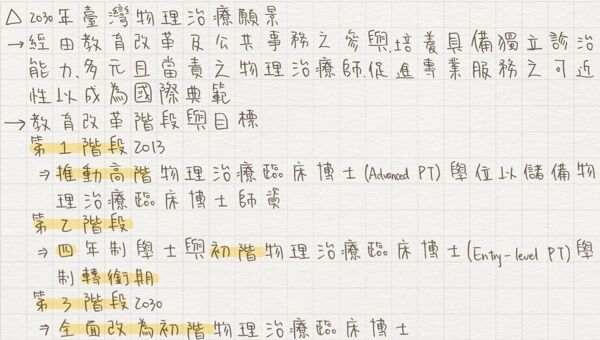 △ 2030年臺灣物理治療願景
→ 經由教育改革及公共事務之參與,培養具備獨立診治
能力,多元且當責之物理治療師,促進專業服務之可近
性以成為國際典範
→ 教育改革階段與目標
第1階段 2013
⇒ 推動高階物理治療臨床博士(Advanced PT)學位以儲備物
理治療臨床博士師資
第2階段
⇒ 四年制學士與初階物理治療臨床博士(Entry-level PT)學
制轉銜期
第3階段 2030
⇒ 全面改為初階物理治療臨床博士